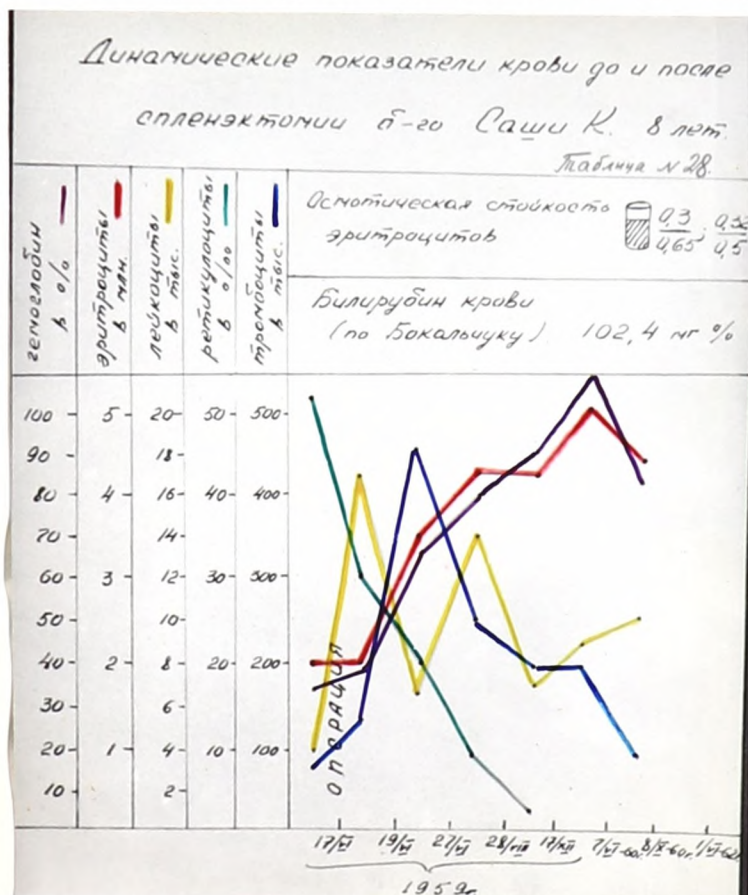 Динамические показатели крови до и после
спленэктомии б-го Саши К. 8 лет.
Таблица № 28.
гемоглобин в %
эритроциты в млн.
лейкоциты в тыс.
ретикулоциты в 0/00
тромбоциты в тыс.
Осмотическая стойкость
эритроцитов
0,3 / 0,65
Билирубин крови
(по Бокальчуку) 102,4 мг %
100 5 20 50 500
90 18
80 4 16 40 400
70 14
60 3 12 30 300
50 10
40 2 8 20 200
30 6
20 1 4 10 100
10 2
ОПЕРАЦИЯ
17/VI 19/VI 27/VI 28/VIII 17/XII 7/VI-60г. 8/X-60г.
1959г.